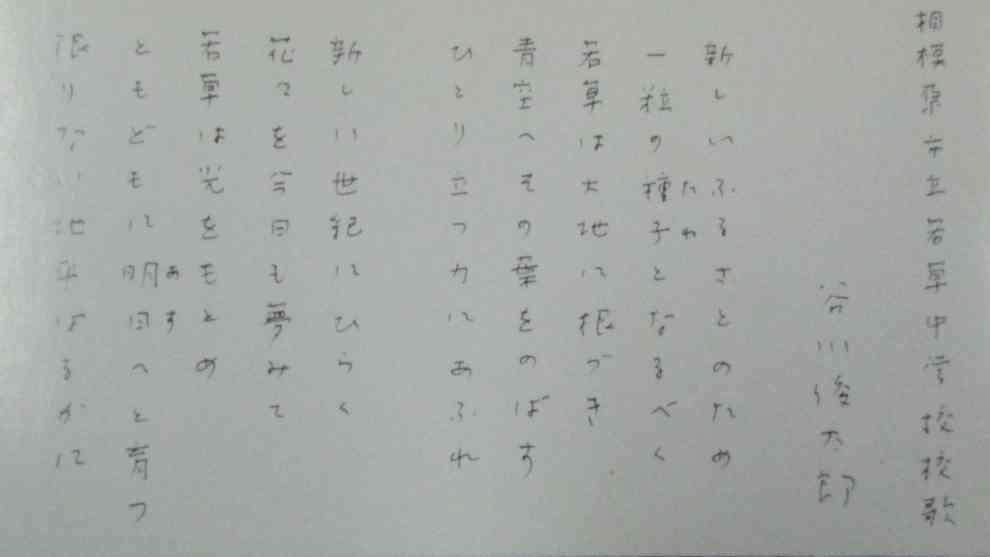 相模原市立若草中学校校歌
谷川俊太郎
新しいふるさとのため
一粒の種子となるべく
たね
若草は大地に根づき
青空へその葉をのばす
ひとり立つ力にあふれ
新しい世紀にひらく
花々を今日も夢みて
若草は光をもとめ
ともどもに明日へと育つ
あす
限りない地平はるかに